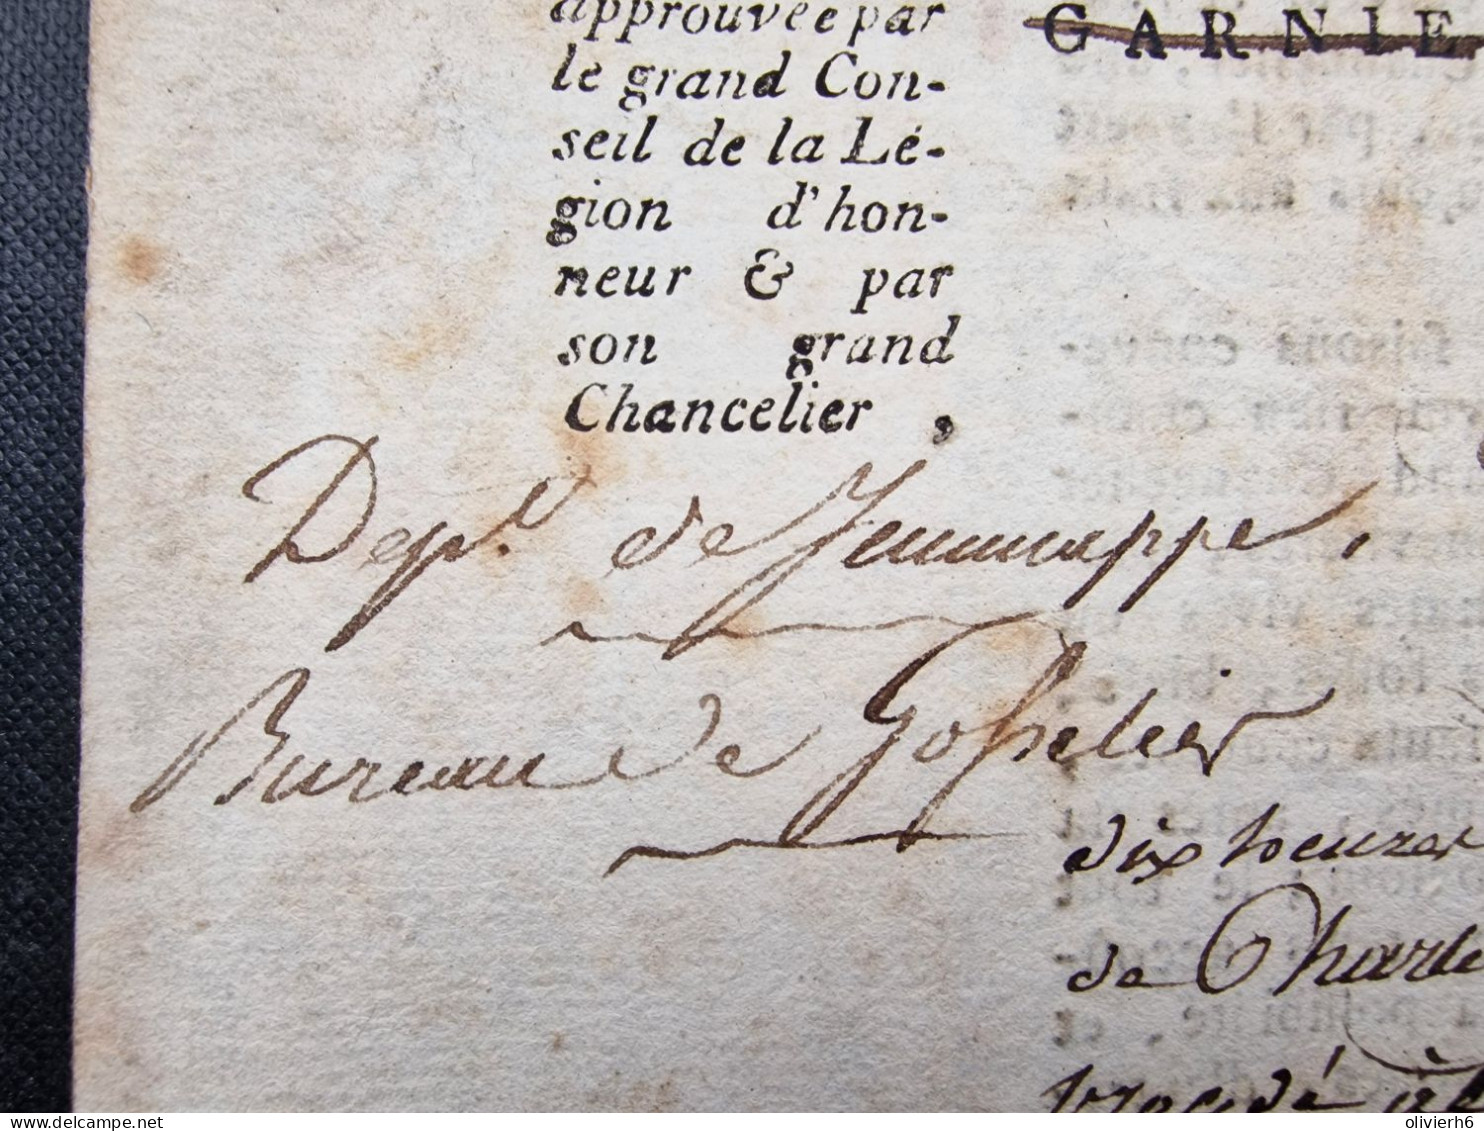 approuvée par
le grand Con-
seil de la Lé-
gion d'hon-
neur & par
son grand
Chancelier ,
GARNIE
Dep.t de Jemmappe,
Bureau de Gosselier
dix heures
de Charle
olivierh6